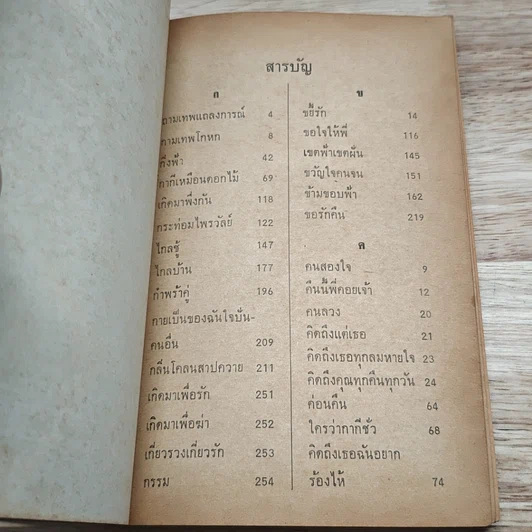 สารบัญ
ก
กามเทพแถลงการณ์ 4
กามเทพโคหก 8
กิ่งฟ้า 42
กากีเหมือนดอกไม้ 69
เกิดมาพึ่งกัน 118
กระท่อมไพรวัลย์ 122
ไกลชู้ 147
ไกลบ้าน 177
กำพร้าคู่ 196
กายเป็นของฉันใจปั่น-
คนอื่น 209
กลิ่นโคลนสาปควาย 211
เกิดมาเพื่อรัก 251
เกิดมาเพื่อฆ่า 252
เกี่ยวรวงเกี่ยวรัก 253
กรรม 254
ข
ขยี้รัก 14
ขอใจให้พี่ 116
เขตฟ้าเขตฝัน 145
ขวัญใจคนจน 151
ข้ามขอบฟ้า 162
ขอรักคืน 219
ค
คนสองใจ 9
คืนนี้พี่คอยเจ้า 12
คนลวง 20
คิดถึงแต่เธอ 21
คิดถึงเธอทุกลมหายใจ 23
คิดถึงคุณทุกคืนทุกวัน 24
ค่อนคืน 64
ใครว่ากากีชั่ว 68
คิดถึงเธอฉันอยาก
ร้องไห้ 74